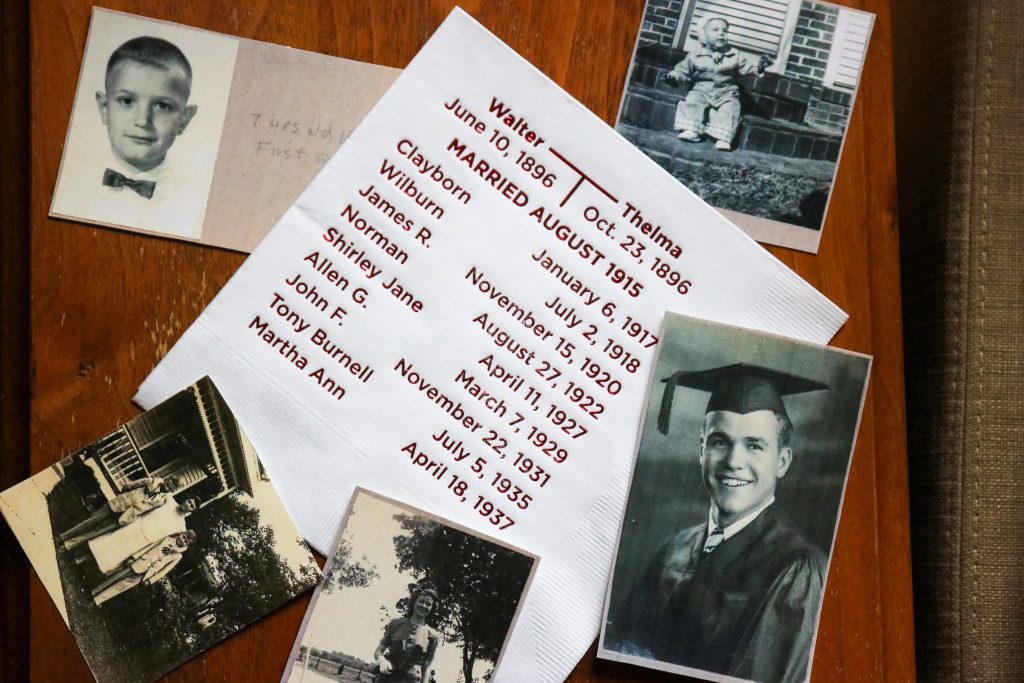 7 yrs old
First
Walter Thelma
June 10, 1896 Oct. 23, 1896
MARRIED AUGUST 1915
Clayborn January 6, 1917
Wilburn July 2, 1918
James R. November 15, 1920
Norman August 27, 1922
Shirley Jane April 11, 1927
Allen G. March 7, 1929
John F. November 22, 1931
Tony Burnell July 5, 1935
Martha Ann April 18, 1937